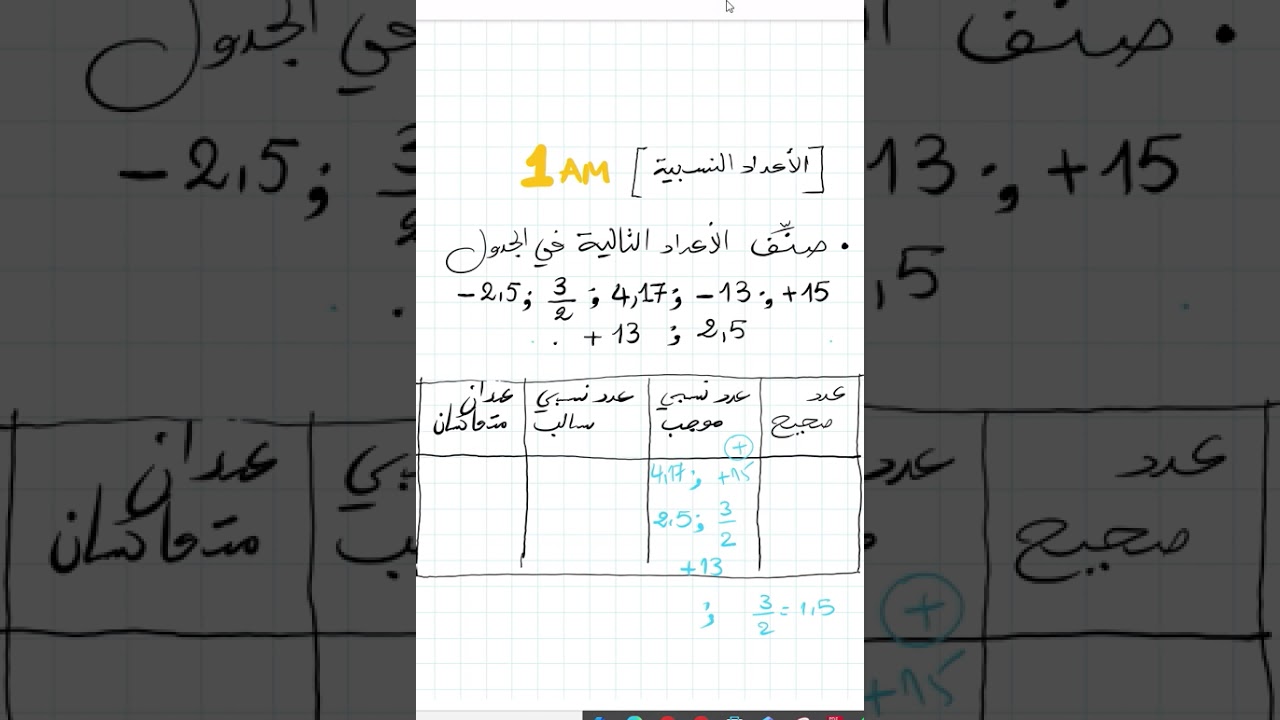 [الأعداد النسبية] 1AM
• صنِّف الأعداد التالية في الجدول
-2,5 ; 3/2 ; 4,17 ; -13 ; +15
+13 ; 2,5
عدد صحيح
عدد نسبي موجب
عدد نسبي سالب
عددان متعاكسان
+
4,17 ; +15
2,5 ; 3/2
+13
; 3/2 = 1,5